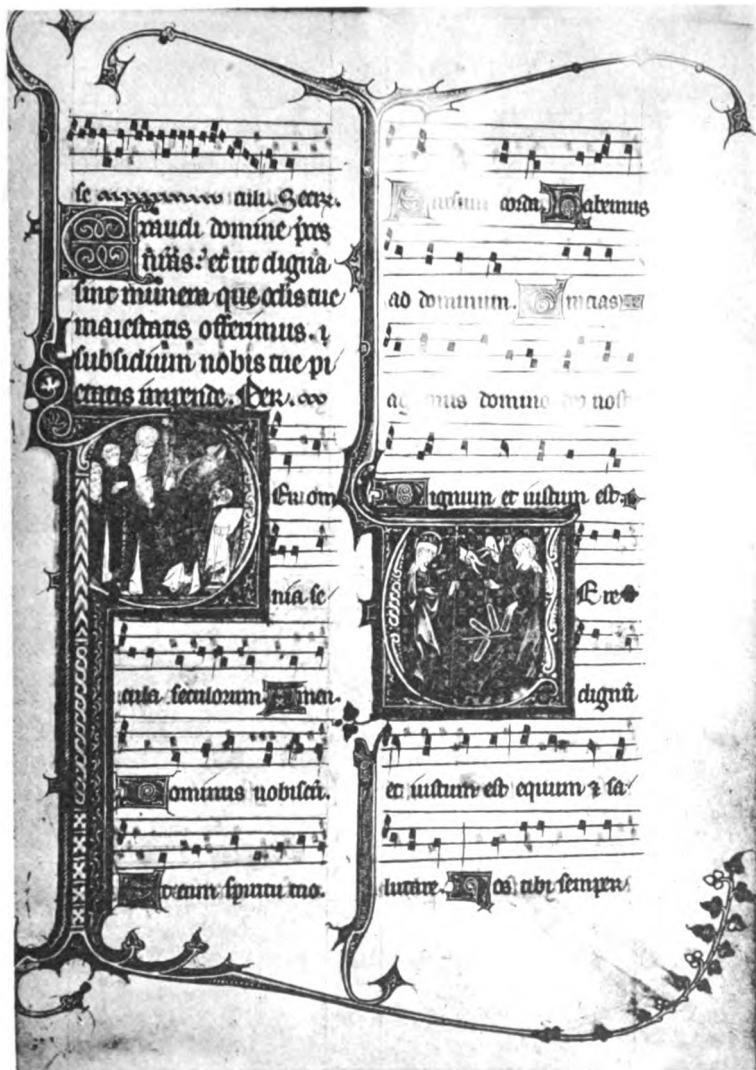 se aaaaaaaaa aili. Secr.
Exaudi domine pces
nr̄as: et ut digna
sint munera que oclis tue
maiestatis offerimus. ⁊
subsidium nobis tue pi
etatis impende. Per.
Per om
nia se
cula seculorum. Amen.
Dominus vobiscū.
Et cum spiritu tuo.
Sursum corda. Habemus
ad dominum. Gracias
agamus domino deo nost
Dignum et iustum est.
Vere
dignū
et iustum est equum ⁊ sa
lutare. Nos tibi semper